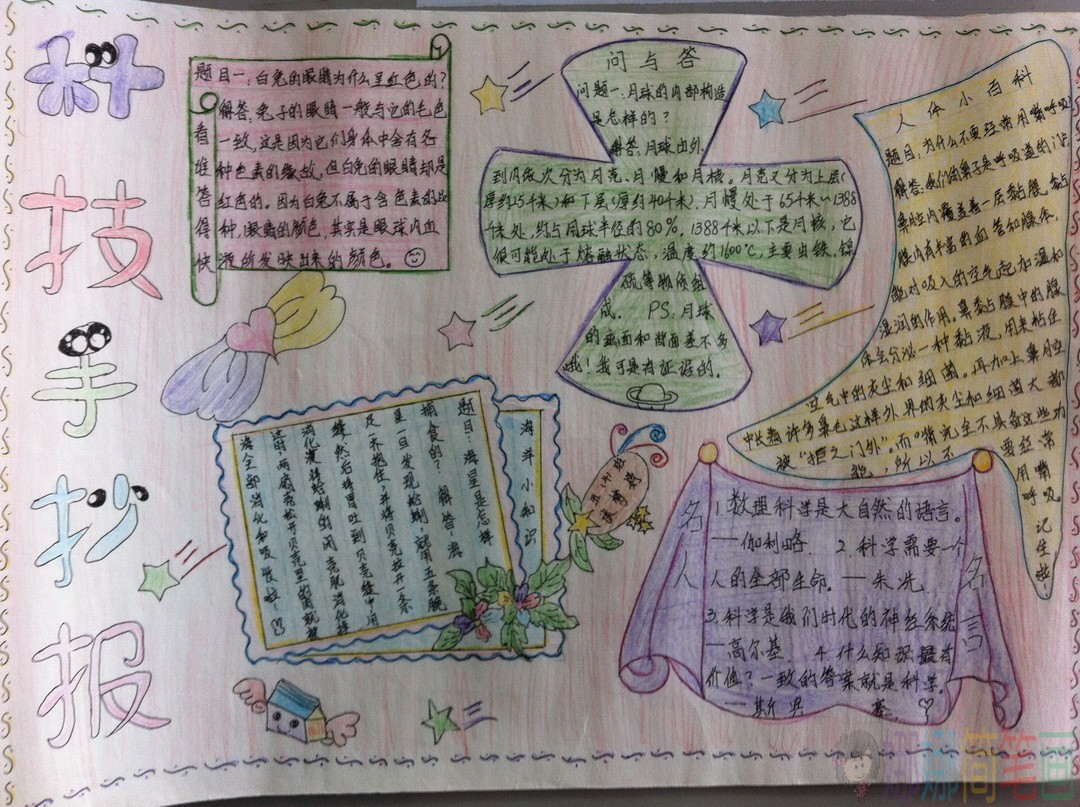 科技手抄报
看谁答得快
题目一:白兔的眼睛为什么呈红色的?
解答:兔子的眼睛一般与它的毛色
一致,这是因为它们身体中含有各
种色素的缘故。但白兔的眼睛却是
红色的。因为白兔不属于含色素的品
种,眼睛的颜色,其实是眼球内血
液所反映出来的颜色。
问与答
问题一:月球的内部构造
是怎样的?
解答:月球由外
到内依次分为月壳、月幔和月核。月壳又分为上层(
厚约25千米)和下层(厚约40千米),月幔处于65千米~1388
千米处,约占月球半径的80%。1388千米以下是月核,它
很可能处于熔融状态,温度约1600℃,主要由铁、镍、
硫等物质组
成。 PS:月球
的正面和背面差不多
哦!我可是有证据的。
人体小百科
题目:为什么不要经常用嘴呼吸
解答:我们的鼻子是呼吸道的门户,
鼻腔内覆盖着一层黏膜,黏
膜内有丰富的血管和腺体,
能对吸入的空气起加温和
湿润的作用。鼻黏膜中的腺
体会分泌一种黏液,用来粘住
空气中的灰尘和细菌。再加上鼻腔
中长着许多鼻毛,这样外界的灰尘和细菌大都
被“拒之门外”。而口嘴完全不具备这些功
能,所以不
要经常
用嘴
呼吸
记住啦!
海洋小知识
题目:海星是怎样
捕食的? 解答:海
星一旦发现蛤蜊,就用五条腕
足齐抱住,并将贝壳拉开一条
缝,然后将胃吐到贝壳缝中用
消化液将蛤蜊的闭壳肌消化掉
这时两扇壳松开贝壳里的肉就被
海全部消化和吸收啦!
名人名言
1.数理科学是大自然的语言。
——伽利略. 2.科学需要一个
人的全部生命。——朱冼.
3.科学是我们时代的神经系统
——高尔基. 4.什么知识最有
价值?一致的答案就是科学。
——斯宾塞.
娜娜简笔画